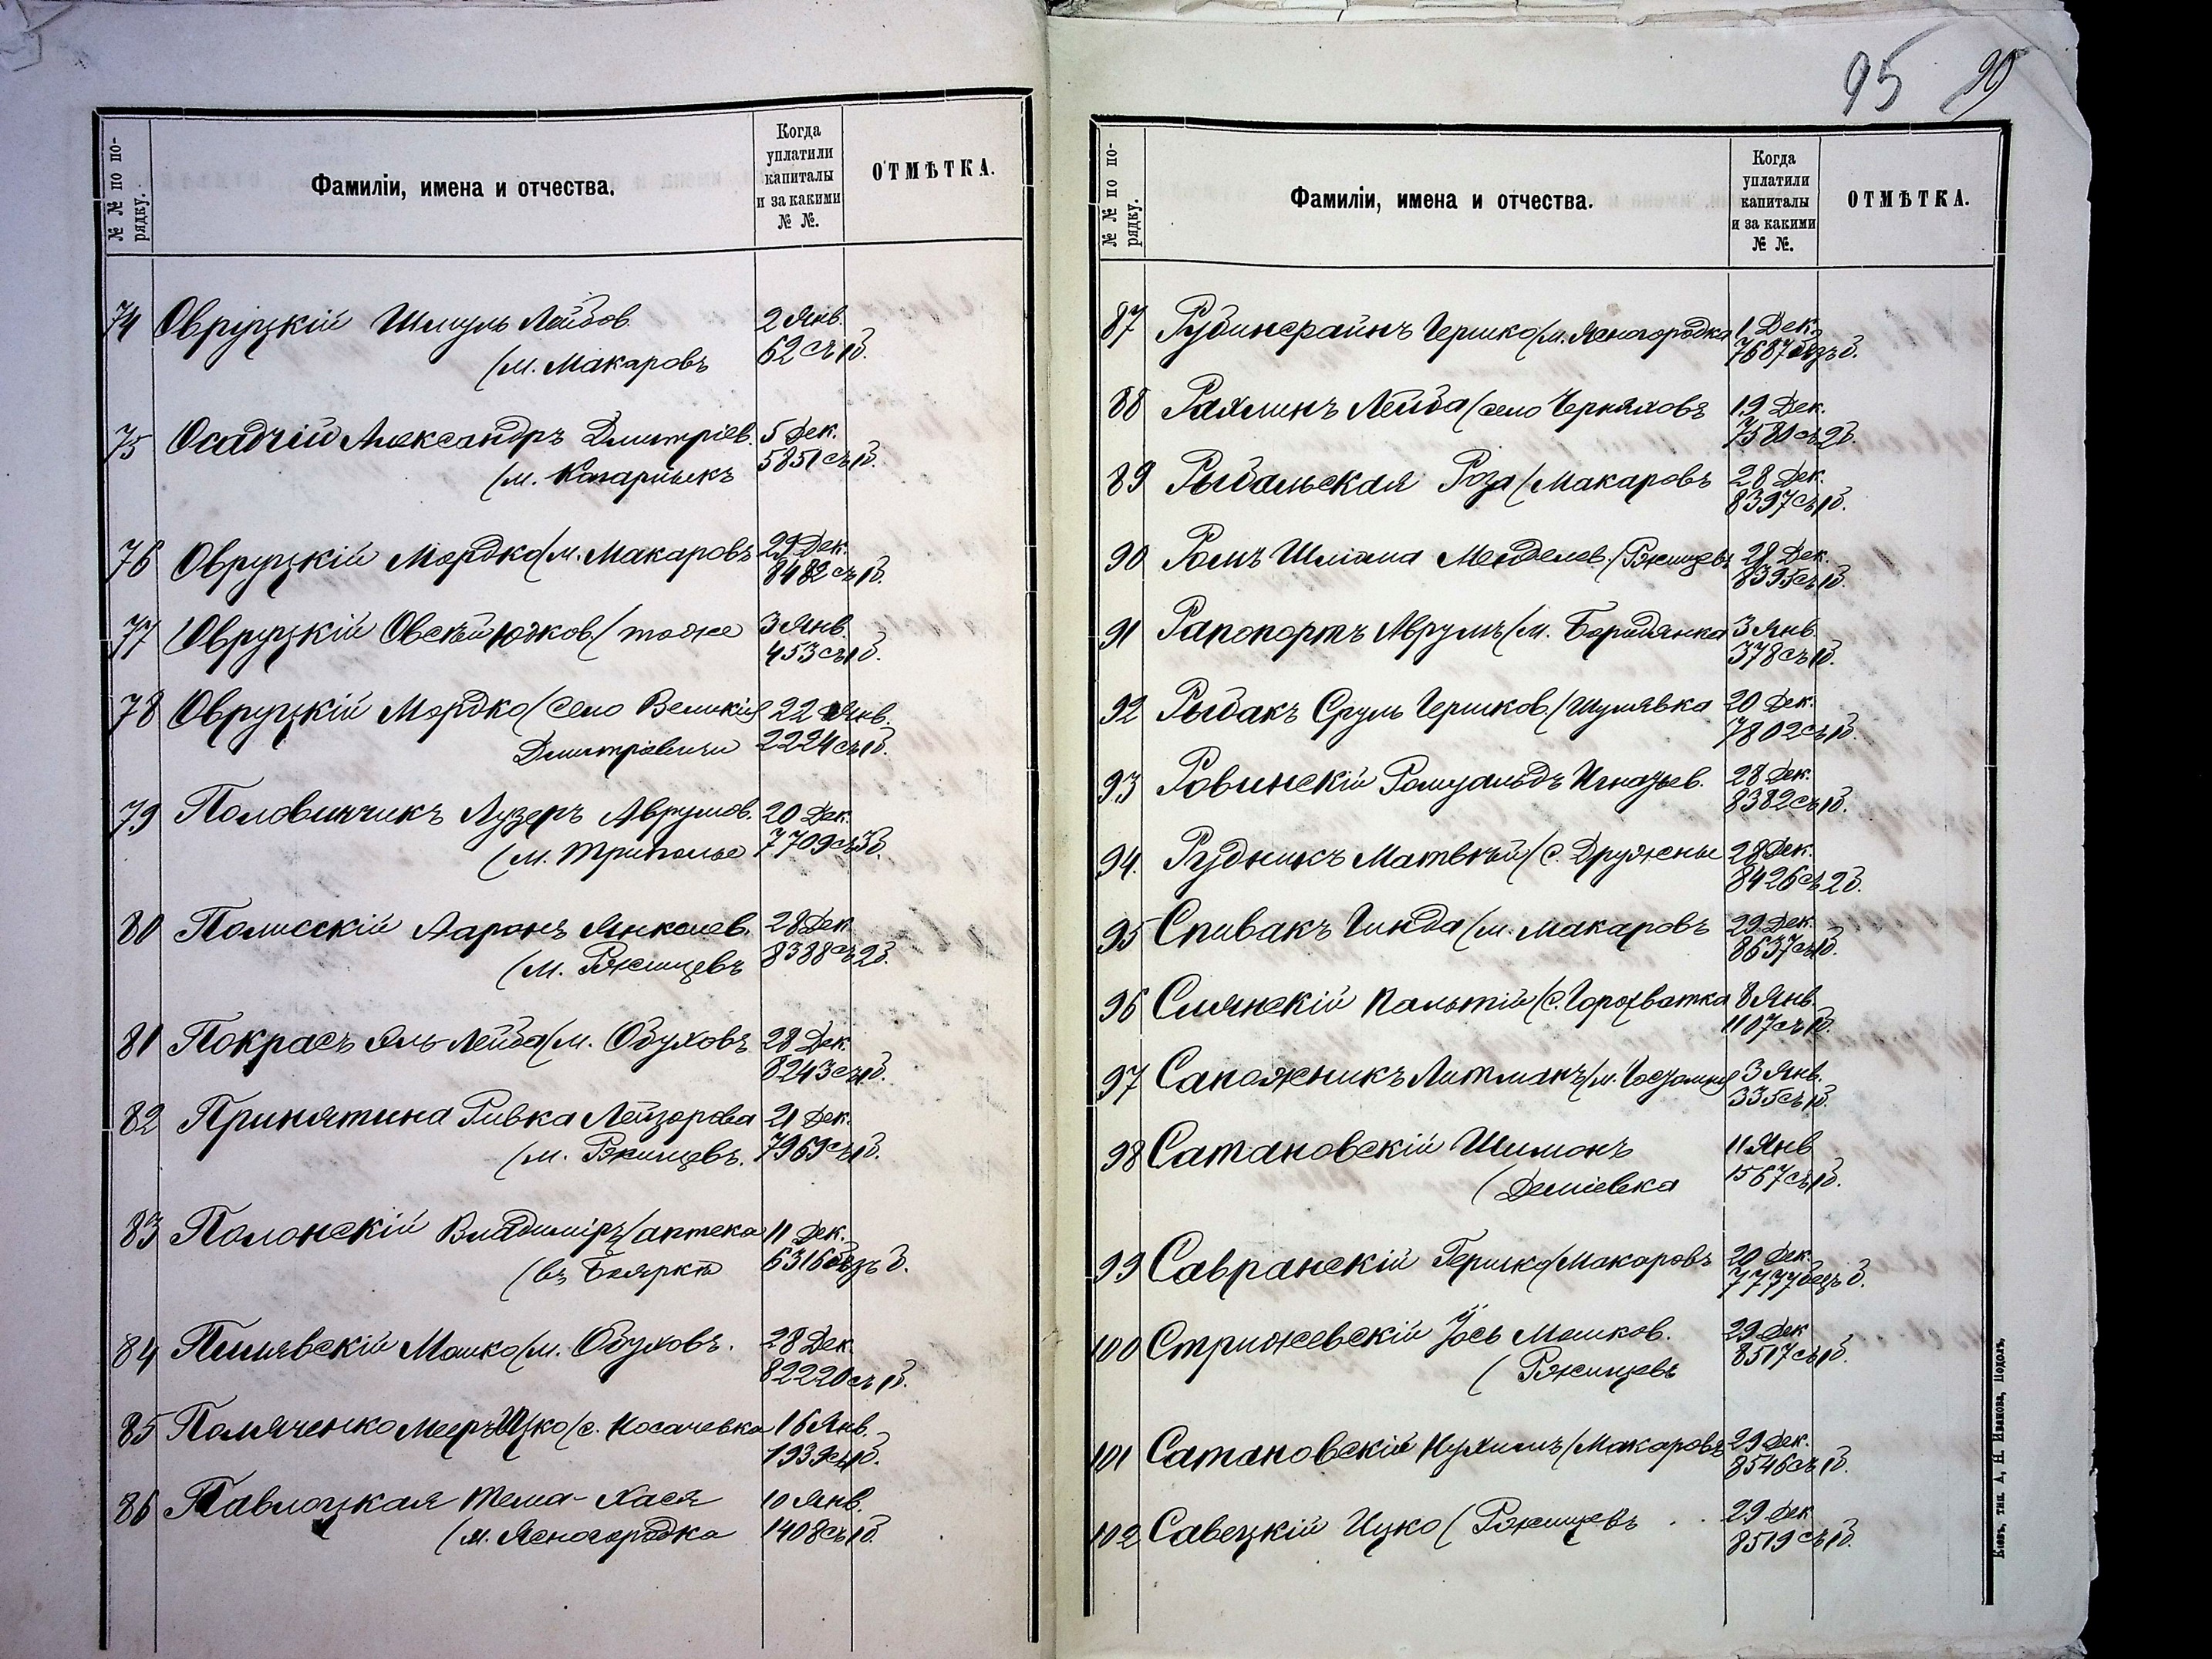 95
№ № по по-
рядку.
Фамиліи, имена и отчества.
Когда
уплатили
капиталы
и за какими
№ №.
ОТМѢТКА.
74 Овруцкій Шмуль Лейбов. 2 Янв.
(м. Макаровъ 62 съ 1 б.
75 Осадчій Александръ Дмитріев. 5 Дек.
(м. Кагарлыкъ 5851 съ 1 б.
76 Овруцкій Мордко (м. Макаровъ 29 Дек.
8482 съ 1 б.
77 Овруцкій Овсѣй Юдков. (тоже 3 Янв.
453 съ 1 б.
78 Овруцкій Мордко (село Великія 22 Янв.
Дмитровичи 2224 съ 1 б.
79 Половинчикъ Лузеръ Аврумов. 20 Дек.
(м. Триполье 7709 съ 3 б.
80 Полисскій Ааронъ Янкелев. 28 Дек.
(м. Ржищевъ 8388 съ 2 б.
81 Покрасъ Эль-Лейба (м. Обуховъ 28 Дек.
8243 съ 1 б.
82 Принятина Ривка Лейзорова 21 Дек.
(м. Ржищевъ. 7969 съ 1 б.
83 Полонскій Владиміръ (аптека 11 Дек.
(въ Бояркѣ 6316 безъ б.
84 Пилявскій Мошко (м. Обуховъ. 28 Дек.
82220 съ 1 б.
85 Поляченко Мееръ Ицко (с. Носачевка 16 Янв.
1939 съ 1 б.
86 Павлоцкая Тема-Хася 10 Янв.
(м. Ясногородка 1408 съ 1 б.
№ № по по-
рядку.
Фамиліи, имена и отчества.
Когда
уплатили
капиталы
и за какими
№ №.
ОТМѢТКА.
87 Рубинсрайнъ Гершко (м. Ясногородка 1 Дек.
7687 безъ б.
88 Рахлинъ Лейба (село Черняховъ 19 Дек.
7580 съ 2 б.
89 Рыбальская Роза (Макаровъ 28 Дек.
8397 съ 1 б.
90 Ромъ Шліома Менделев. (Ржищевъ 28 Дек.
8395 съ 1 б.
91 Рапопортъ Аврумъ (м. Бородянка 3 Янв.
378 съ 1 б.
92 Рыбакъ Сруль Гершков. (Шулявка 20 Дек.
7802 съ 1 б.
93 Ровинскій Ромуальдъ Игнатьев. 28 Дек.
8382 съ 1 б.
94. Рудникъ Матвѣй (с. Дружены 28 Дек.
8426 съ 2 б.
95 Спивакъ Гинда (м. Макаровъ 29 Дек.
8637 съ 1 б.
96 Слянскій Пальтій (с. Горохватка 8 Янв.
1107 съ 1 б.
97 Сапожникъ Литманъ (м. 3 Янв.
335 съ 1 б.
98 Сатановскій Шимонъ 11 Янв
(Деміевка 1567 съ 1 б.
99 Савранскій Гершко (Макаровъ 20 Дек.
7777 безъ б.
100 Стрижевскій Іось Мошков. 29 Дек
(Ржищевъ 8517 съ 1 б.
101 Сатановскій Нухимъ (Макаровъ 29 Дек.
8546 съ 1 б.
102 Савецкій Ицко (Ржищевъ 29 Дек
8519 съ 1 б.
Кіевъ, тип. А. Н. Иванова, Подолъ.